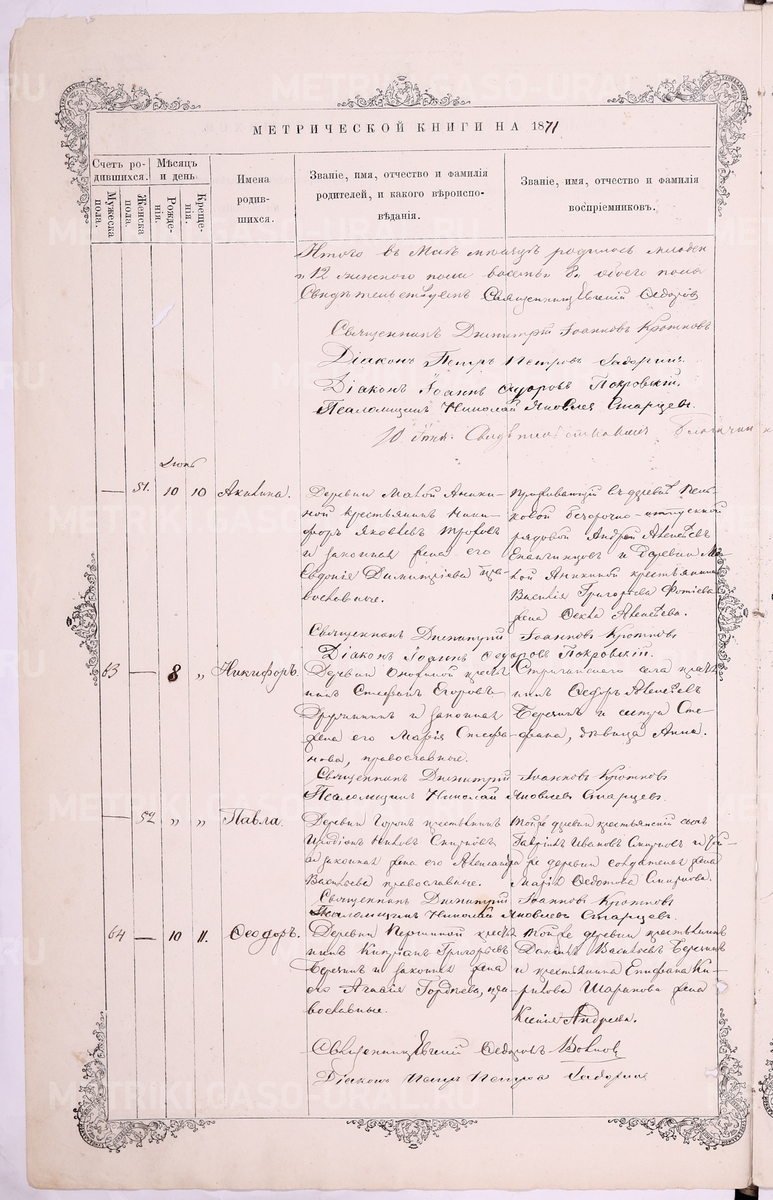 МЕТРИЧЕСКОЙ КНИГИ НА 1871
Счетъ родившихся.
Мужеска пола.
Женска пола.
Мѣсяцъ и день
Рожденія.
Крещенія.
Имена родившихся.
Званіе, имя, отчество и фамилія родителей, и какого вѣроисповѣданія.
Званіе, имя, отчество и фамилія воспріемниковъ.
Итого въ Маѣ мѣсяцѣ родилось
12 женскаго пола восемь 8, обоего пола
Священникъ Евгеній Ѳедоровъ
Священникъ Димитрій Іоанновъ Кротковъ
Діаконъ Петръ Петровъ
Діаконъ Іоаннъ Ѳедоровъ Покровскій.
Псаломщикъ Николай Яковлев Старцевъ.
Іюнь
— 51. 10 10 Акилина.
Деревни Малой Аники-
ной крестьянинъ Ники-
форъ Яковлевъ
и законная жена его
Евдокія Димитріева пра-
вославные.
Проживающій въ деревнѣ
ковой безсрочно-отпускной
рядовой Андрей Алексѣевъ
и деревни Ма-
лой Аникиной крестьянина
Василія Григорьева Фотіева
жена Ѳекла Алексѣева.
Священникъ Димитрій Іоанновъ Кротковъ
Діаконъ Іоаннъ Ѳедоровъ Покровскій.
63 — 8 „ Никифоръ.
Деревни крестья-
нинъ Стефанъ Егоровъ
Дружининъ и законная
жена его Марія Стефа-
нова, православные.
Стриганскаго села крестья-
нинъ Ѳедоръ Алексѣевъ
Берсенев и сестра Сте-
фана, дѣвица Анна.
Священникъ Димитрій Іоанновъ Кротковъ
Псаломщикъ Николай Яковлевъ Старцевъ.
— 52 „ „ Павла.
Деревни крестьянинъ
Иродіонъ Смирновъ
и законная жена его Александра
Васильева православные.
Той же деревни крестьянскій сынъ
Гавріилъ Ивановъ Смирновъ и той-
же деревни солдатская жена
Марія Ѳедотова Смирнова.
Священникъ Димитрій Іоанновъ Кротковъ
Псаломщикъ Николай Яковлевъ Старцевъ.
64 — 10 11. Ѳеодоръ.
Деревни Першиной кресть-
нинъ Кипріанъ Григорьевъ
Берсенев и законная жена
его Агафія Гордѣева, пра-
вославные.
Той же деревни крестьянинъ
Даніилъ Васильевъ Берсенев
и крестьянина Епифана Ки-
рилова Шарапова жена
Ксенія Андреева.
Священникъ Евгеній Ѳедоровъ
Діаконъ Петръ Петровъ
METRIKI.GASO-URAL.RU